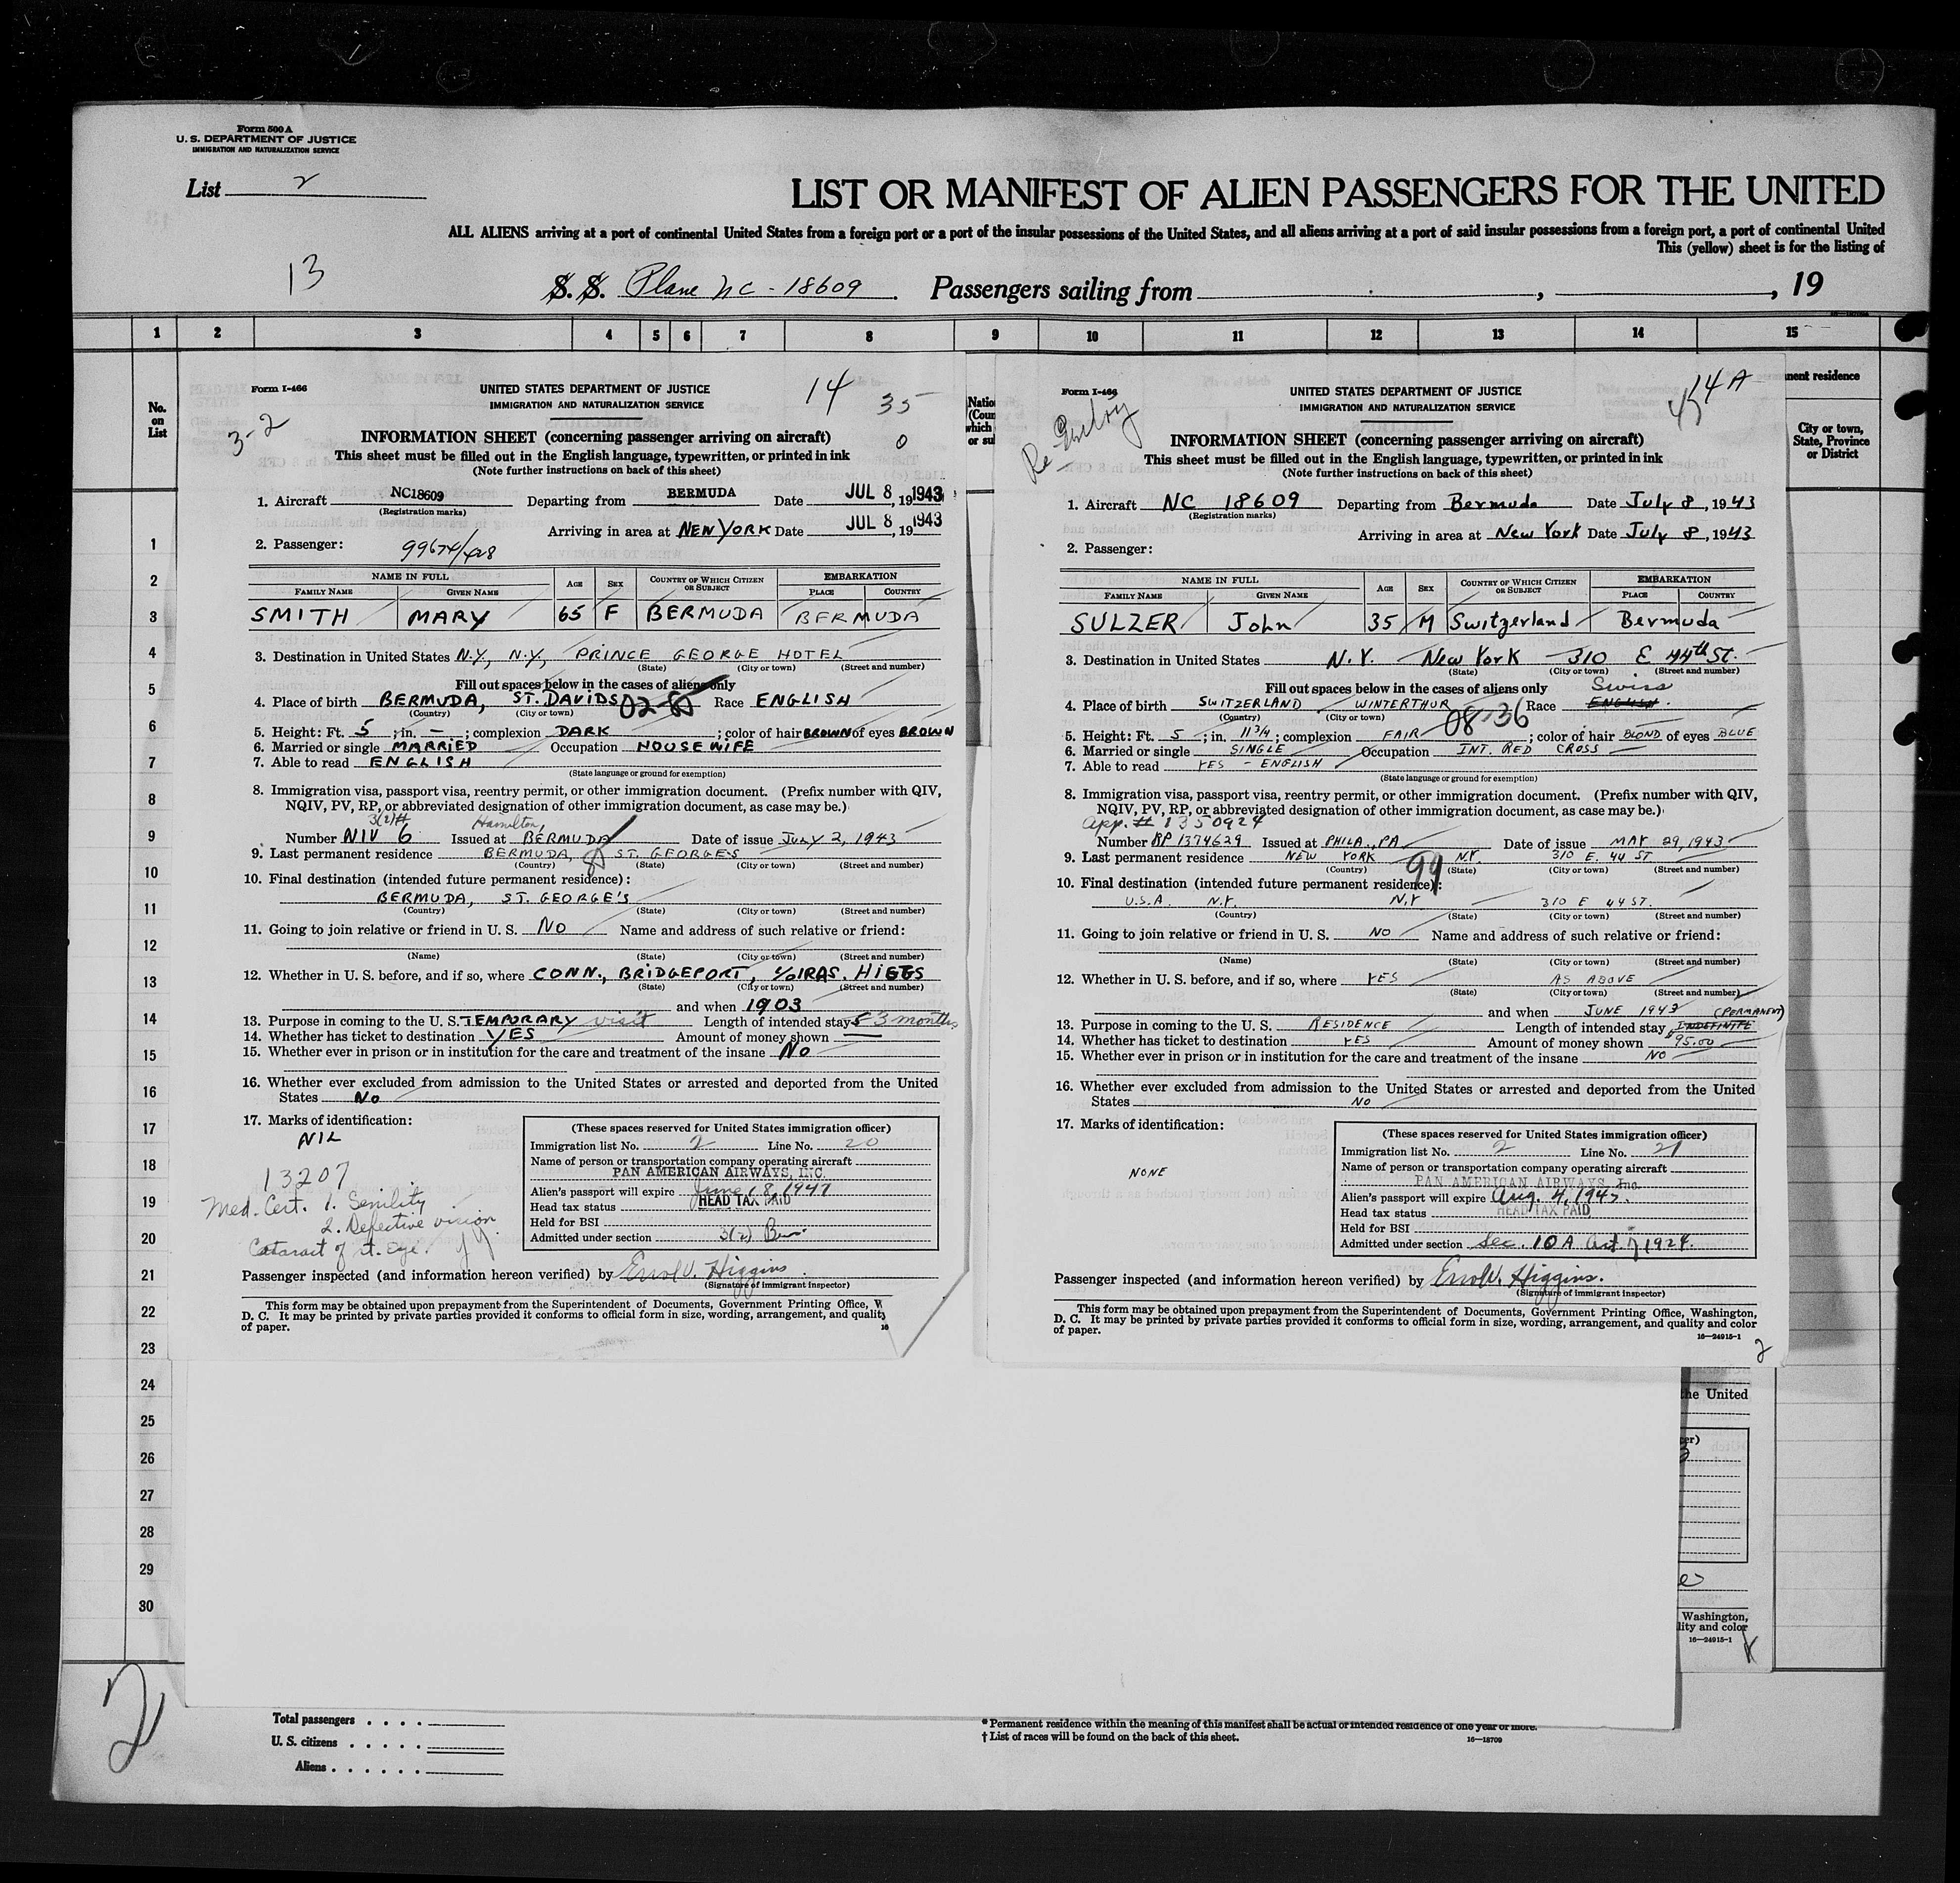 Form 500 A
U. S. DEPARTMENT OF JUSTICE
IMMIGRATION AND NATURALIZATION SERVICE
List 2
LIST OR MANIFEST OF ALIEN PASSENGERS FOR THE UNITED
ALL ALIENS arriving at a port of continental United States from a foreign port or a port of the insular possessions of the United States, and all aliens arriving at a port of said insular possessions from a foreign port, a port of continental United
This (yellow) sheet is for the listing of
13
S. S. Plane NC - 18609. Passengers sailing from , , 19
1 2 3 4 5 6 7 8 9 10 11 12 13 14 15
No.
on
List
1
2
3
4
5
6
7
8
9
10
11
12
13
14
15
16
17
18
19
20
21
22
23
24
25
26
27
28
29
30
Form I-466
UNITED STATES DEPARTMENT OF JUSTICE
IMMIGRATION AND NATURALIZATION SERVICE
14
35
0
3-2
INFORMATION SHEET (concerning passenger arriving on aircraft)
This sheet must be filled out in the English language, typewritten, or printed in ink
(Note further instructions on back of this sheet)
1. Aircraft NC18609 Departing from BERMUDA Date JUL 8, 1943
(Registration marks)
Arriving in area at NEW YORK Date JUL 8, 1943
2. Passenger: 99674/428
NAME IN FULL AGE SEX COUNTRY OF WHICH CITIZEN OR SUBJECT EMBARKATION
FAMILY NAME GIVEN NAME PLACE COUNTRY
SMITH MARY 65 F BERMUDA BERMUDA
3. Destination in United States N.Y., N.Y., PRINCE GEORGE HOTEL
(State) (City or town) (Street and number)
Fill out spaces below in the cases of aliens only
4. Place of birth BERMUDA, ST. DAVIDS Race ENGLISH
(Country) (City or town)
5. Height: Ft. 5; in. —; complexion DARK; color of hair BROWN of eyes BROWN
6. Married or single MARRIED Occupation HOUSEWIFE
7. Able to read ENGLISH
(State language or ground for exemption)
8. Immigration visa, passport visa, reentry permit, or other immigration document. (Prefix number with QIV,
NQIV, PV, RP, or abbreviated designation of other immigration document, as case may be.)
Hamilton,
Number NIV 6 Issued at BERMUDA Date of issue JULY 2, 1943
9. Last permanent residence BERMUDA, ST. GEORGE'S
(Country) (State) (City or town) (Street and number)
10. Final destination (intended future permanent residence):
BERMUDA, ST. GEORGE'S
(Country) (State) (City or town) (Street and number)
11. Going to join relative or friend in U. S. NO Name and address of such relative or friend:
(Name) (State) (City or town) (Street and number)
12. Whether in U. S. before, and if so, where CONN., BRIDGEPORT, HIGGS
(State) (City or town) (Street and number)
and when 1903
13. Purpose in coming to the U. S. TEMPORARY visit Length of intended stay 3 months
14. Whether has ticket to destination YES Amount of money shown —
15. Whether ever in prison or in institution for the care and treatment of the insane NO
16. Whether ever excluded from admission to the United States or arrested and deported from the United
States NO
17. Marks of identification:
NIL
13207
Med. Cert. 1. Senility
2. Defective vision
Cataract of rt. eye.
(These spaces reserved for United States immigration officer)
Immigration list No. 2 Line No. 20
Name of person or transportation company operating aircraft
PAN AMERICAN AIRWAYS, INC.
Alien's passport will expire June 18, 1947
Head tax status HEAD TAX PAID
Held for BSI
Admitted under section 3(2)
Passenger inspected (and information hereon verified) by Errol V. Higgins
(Signature of immigrant inspector)
This form may be obtained upon prepayment from the Superintendent of Documents, Government Printing Office, W
D. C. It may be printed by private parties provided it conforms to official form in size, wording, arrangement, and quality
of paper.
16
Natio
(Coun
which
or su
Form I-466
Re-Entry
UNITED STATES DEPARTMENT OF JUSTICE
IMMIGRATION AND NATURALIZATION SERVICE
14 A
45
INFORMATION SHEET (concerning passenger arriving on aircraft)
This sheet must be filled out in the English language, typewritten, or printed in ink
(Note further instructions on back of this sheet)
1. Aircraft NC 18609 Departing from Bermuda Date July 8, 1943
(Registration marks)
Arriving in area at New York Date July 8, 1943
2. Passenger:
NAME IN FULL AGE SEX COUNTRY OF WHICH CITIZEN OR SUBJECT EMBARKATION
FAMILY NAME GIVEN NAME PLACE COUNTRY
SULZER John 35 M Switzerland Bermuda
3. Destination in United States N.Y. New York 310 E 44th St.
(State) (City or town) (Street and number)
Fill out spaces below in the cases of aliens only
Swiss
4. Place of birth SWITZERLAND WINTERTHUR 08-36 Race ENGLISH.
(Country) (City or town)
5. Height: Ft. 5; in. 11 3/4; complexion FAIR; color of hair BLOND of eyes BLUE
6. Married or single SINGLE Occupation INT. RED CROSS
7. Able to read YES - ENGLISH
(State language or ground for exemption)
8. Immigration visa, passport visa, reentry permit, or other immigration document. (Prefix number with QIV,
NQIV, PV, RP, or abbreviated designation of other immigration document, as case may be.)
App. # 1350924
Number RP 1374629 Issued at PHILA., PA Date of issue MAY 29, 1943
9. Last permanent residence NEW YORK N.Y. 310 E. 44 ST
(Country) (State) (City or town) (Street and number)
99
10. Final destination (intended future permanent residence):
U.S.A. N.Y. N.Y 310 E 44 ST.
(Country) (State) (City or town) (Street and number)
11. Going to join relative or friend in U. S. NO Name and address of such relative or friend:
(Name) (State) (City or town) (Street and number)
12. Whether in U. S. before, and if so, where YES AS ABOVE
(State) (City or town) (Street and number)
and when JUNE 1943
(PERMANENT)
13. Purpose in coming to the U. S. RESIDENCE Length of intended stay INDEFINITE
14. Whether has ticket to destination YES Amount of money shown $95.00
15. Whether ever in prison or in institution for the care and treatment of the insane NO
16. Whether ever excluded from admission to the United States or arrested and deported from the United
States NO
17. Marks of identification:
NONE
(These spaces reserved for United States immigration officer)
Immigration list No. 2 Line No. 21
Name of person or transportation company operating aircraft
PAN AMERICAN AIRWAYS, Inc.
Alien's passport will expire Aug. 4, 1945.
Head tax status HEAD TAX PAID
Held for BSI
Admitted under section Sec. 10 A Act of 1924.
Passenger inspected (and information hereon verified) by Errol V. Higgins.
(Signature of immigrant inspector)
This form may be obtained upon prepayment from the Superintendent of Documents, Government Printing Office, Washington,
D. C. It may be printed by private parties provided it conforms to official form in size, wording, arrangement, and quality and color
of paper.
16—24915-1
2
nent residence
City or town,
State, Province
or District
he United
cer)
Washington,
lity and color
16—24915-1
2
Total passengers . . . .
U. S. citizens . . . . .
Aliens . . . . . .
* Permanent residence within the meaning of this manifest shall be actual or intended residence of one year or more.
† List of races will be found on the back of this sheet.
16—18709